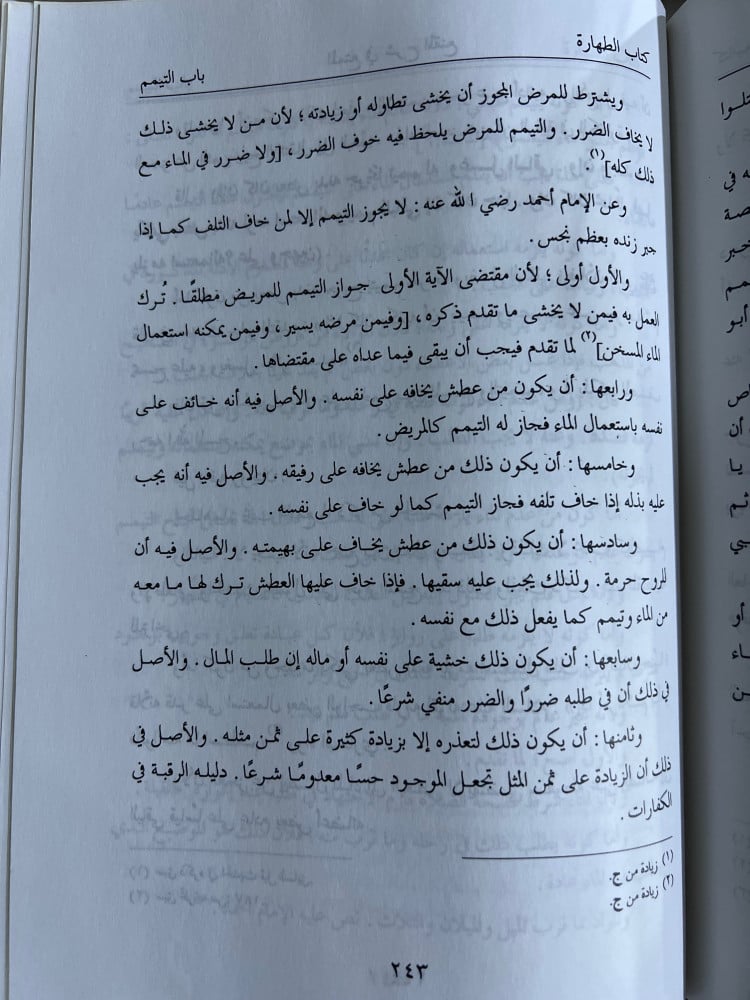 كتاب الطهارة
باب التيمم
ويشترط للمرض المجوز أن يخشى تطاوله أو زيادته ؛ لأن من لا يخشى ذلك
لا يخاف الضرر . والتيمم للمرض يلحظ فيه خوف الضرر ، [ولا ضرر في الماء مع
ذلك كله](١) .
وعن الإمام أحمد رضي الله عنه : لا يجوز التيمم إلا لمن خاف التلف كما إذا
جبر زنده بعظم نجس .
والأول أولى ؛ لأن مقتضى الآية الأولى جواز التيمم للمريض مطلقًا . تُرك
العمل به فيمن لا يخشى ما تقدم ذكره ، [وفيمن مرضه يسير ، وفيمن يمكنه استعمال
الماء المسخن](٢) لما تقدم فيجب أن يبقى فيما عداه على مقتضاها .
ورابعها : أن يكون من عطش يخافه على نفسه . والأصل فيه أنه خائف على
نفسه باستعمال الماء فجاز له التيمم كالمريض .
وخامسها : أن يكون ذلك من عطش يخافه على رفيقه . والأصل فيه أنه يجب
عليه بذله إذا خاف تلفه فجاز التيمم كما لو خاف على نفسه .
وسادسها : أن يكون ذلك من عطش يخاف على بهيمته . والأصل فيه أن
للروح حرمة . ولذلك يجب عليه سقيها . فإذا خاف عليها العطش ترك لها ما معه
من الماء وتيمم كما يفعل ذلك مع نفسه .
وسابعها : أن يكون ذلك خشية على نفسه أو ماله إن طلب المال . والأصل
في ذلك أن في طلبه ضررًا والضرر منفي شرعًا .
وثامنها : أن يكون ذلك لتعذره إلا بزيادة كثيرة على ثمن مثله . والأصل في
ذلك أن الزيادة على ثمن المثل تجعل الموجود حسًا معدومًا شرعًا . دليله الرقبة في
الكفارات .
(١) زيادة من ج.
(٢) زيادة من ج.
٢٤٣